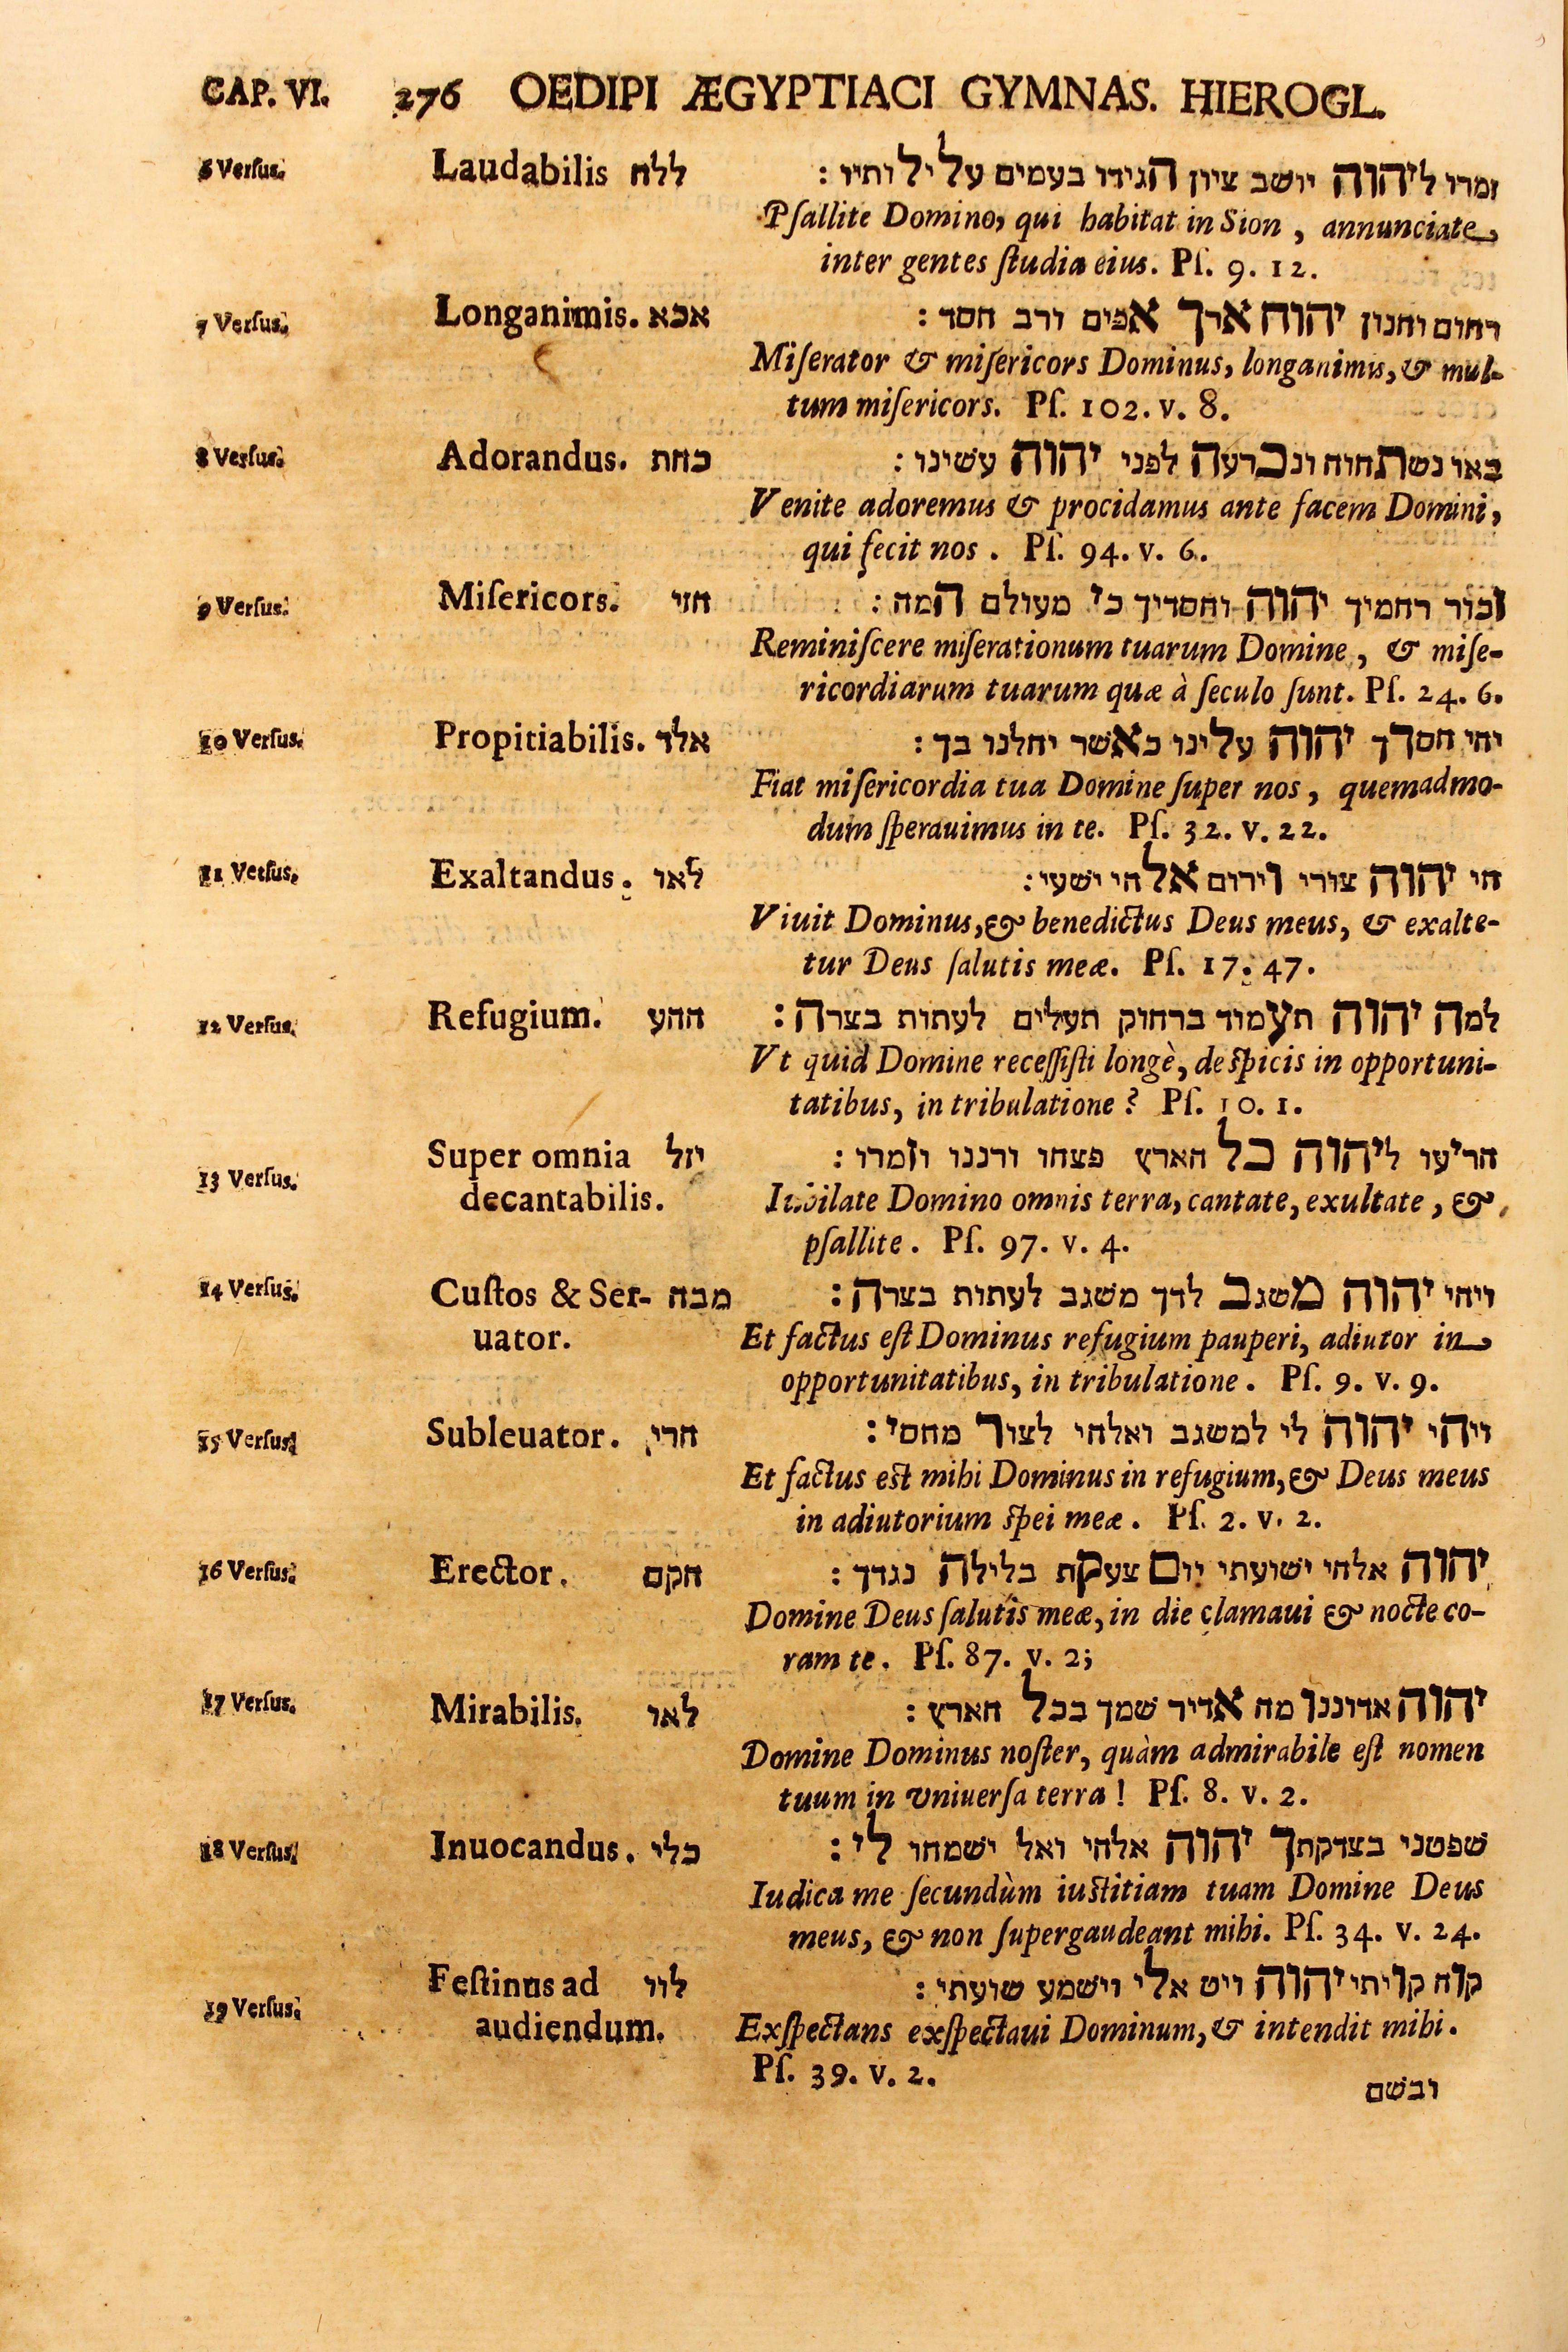 CAP. VI. 276 OEDIPI ÆGYPTIACI GYMNAS. HIEROGL.
6 Verſus. Laudabilis ללח זמרו ליהוה יושב ציון הגידו בעמים עלילותיו :
Pſallite Domino, qui habitat in Sion, annunciate
inter gentes ſtudia eius. Pſ. 9. 12.
7 Verſus. Longanimis. אכא רחום וחנון יהוה ארך אפים ורב חסד :
Miſerator & miſericors Dominus, longanimis, & mul-
tum miſericors. Pſ. 102. v. 8.
8 Verſus. Adorandus. כחת באו נשתחוח ונכרעה לפני יהוה עשינו :
Venite adoremus & procidamus ante facem Domini,
qui fecit nos. Pſ. 94. v. 6.
9 Verſus. Miſericors. חזי זכור רחמיך יהוה וחסדיך כי מעולם המה :
Reminiſcere miſerationum tuarum Domine, & miſe-
ricordiarum tuarum quæ à ſeculo ſunt. Pſ. 24. 6.
10 Verſus. Propitiabilis. אלד יחי חסדך יהוה עלינו כאשר יחלנו בך :
Fiat miſericordia tua Domine ſuper nos, quemadmo-
dum ſperauimus in te. Pſ. 32. v. 22.
11 Verſus. Exaltandus. לאו חי יהוה צורי וירום אלחי ישעי :
Viuit Dominus, & benedictus Deus meus, & exalte-
tur Deus ſalutis meæ. Pſ. 17. 47.
12 Verſus. Refugium. ההע למה יהוה תעמוד ברחוק תעלים לעתות בצרה :
Vt quid Domine receſſiſti longè, deſpicis in opportuni-
tatibus, in tribulatione? Pſ. 10. 1.
13 Verſus. Super omnia יזל הריעו ליהוה כל הארץ פצחו ורננו וזמרו :
decantabilis. Iubilate Domino omnis terra, cantate, exultate, &
pſallite. Pſ. 97. v. 4.
14 Verſus. Cuſtos & Ser- מבח ויהי יהוה משגב לדך משגב לעתות בצרה :
uator. Et factus eſt Dominus refugium pauperi, adiutor in
opportunitatibus, in tribulatione. Pſ. 9. v. 9.
15 Verſus. Subleuator. חרי ויהי יהוה לי למשגב ואלחי לצור מחסי :
Et factus eſt mihi Dominus in refugium, & Deus meus
in adiutorium ſpei meæ. Pſ. 2. v. 2.
16 Verſus. Erector. חקם יהוה אלחי ישועתי יום צעקת בלילה נגדך :
Domine Deus ſalutis meæ, in die clamaui & nocte co-
ram te. Pſ. 87. v. 2;
17 Verſus. Mirabilis. לאו יהוה אדוננו מח אדיר שמך בכל הארץ :
Domine Dominus noſter, quàm admirabile eſt nomen
tuum in vniuerſa terra! Pſ. 8. v. 2.
18 Verſus. Inuocandus. כלי שפטני בצדקתך יהוה אלחי ואל ישמחו לי :
Iudica me ſecundùm iuſtitiam tuam Domine Deus
meus, & non ſupergaudeant mihi. Pſ. 34. v. 24.
19 Verſus. Feſtinus ad לוו קוח קויתי יהוה ויט אלי וישמע שועתי :
audiendum. Exſpectans exſpectaui Dominum, & intendit mihi.
Pſ. 39. v. 2.
ובשם